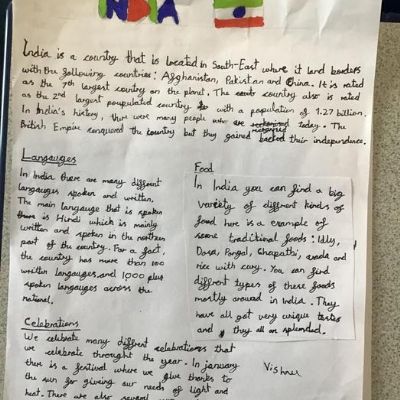 INDIA
India is a country that is located in South-East where it land borders
with the following countries: Afghanistan, Pakistan and China. It is rated
as the 7th largest country on the planet. The country also is rated
as the 2nd largest poupulated country with a population of 1.27 billion.
In India's history, there were many people who are recognized today. The
British Empire conquered the country but they gained back their independence.
Langauges
In India there are many diffrent
langauges spoken and written,
The main langauge that is spoken
there is Hindi which is mainly
written and spoken in the northern
part of the country. For a fact,
the country has more than 100
written langauges and 1,000 plus
spoken langauges across the
national,
Food
In India you can find a big
variety of diffrent kinds of
food here is a example of
some traditional foods: Idly,
Dosa, Pongal, Chapathi, vada and
rice with curry. You can find
diffrent types of these foods
mostly around in India. They
have all got very unique tastes
and they all are splended.
Celebrations
We celebrate many diffrent celebrations that
we celebrate throught the year. In january
there is a festival where we give thanks to
the sun for giving our needs of light and
heat. There are also several
Vishnu